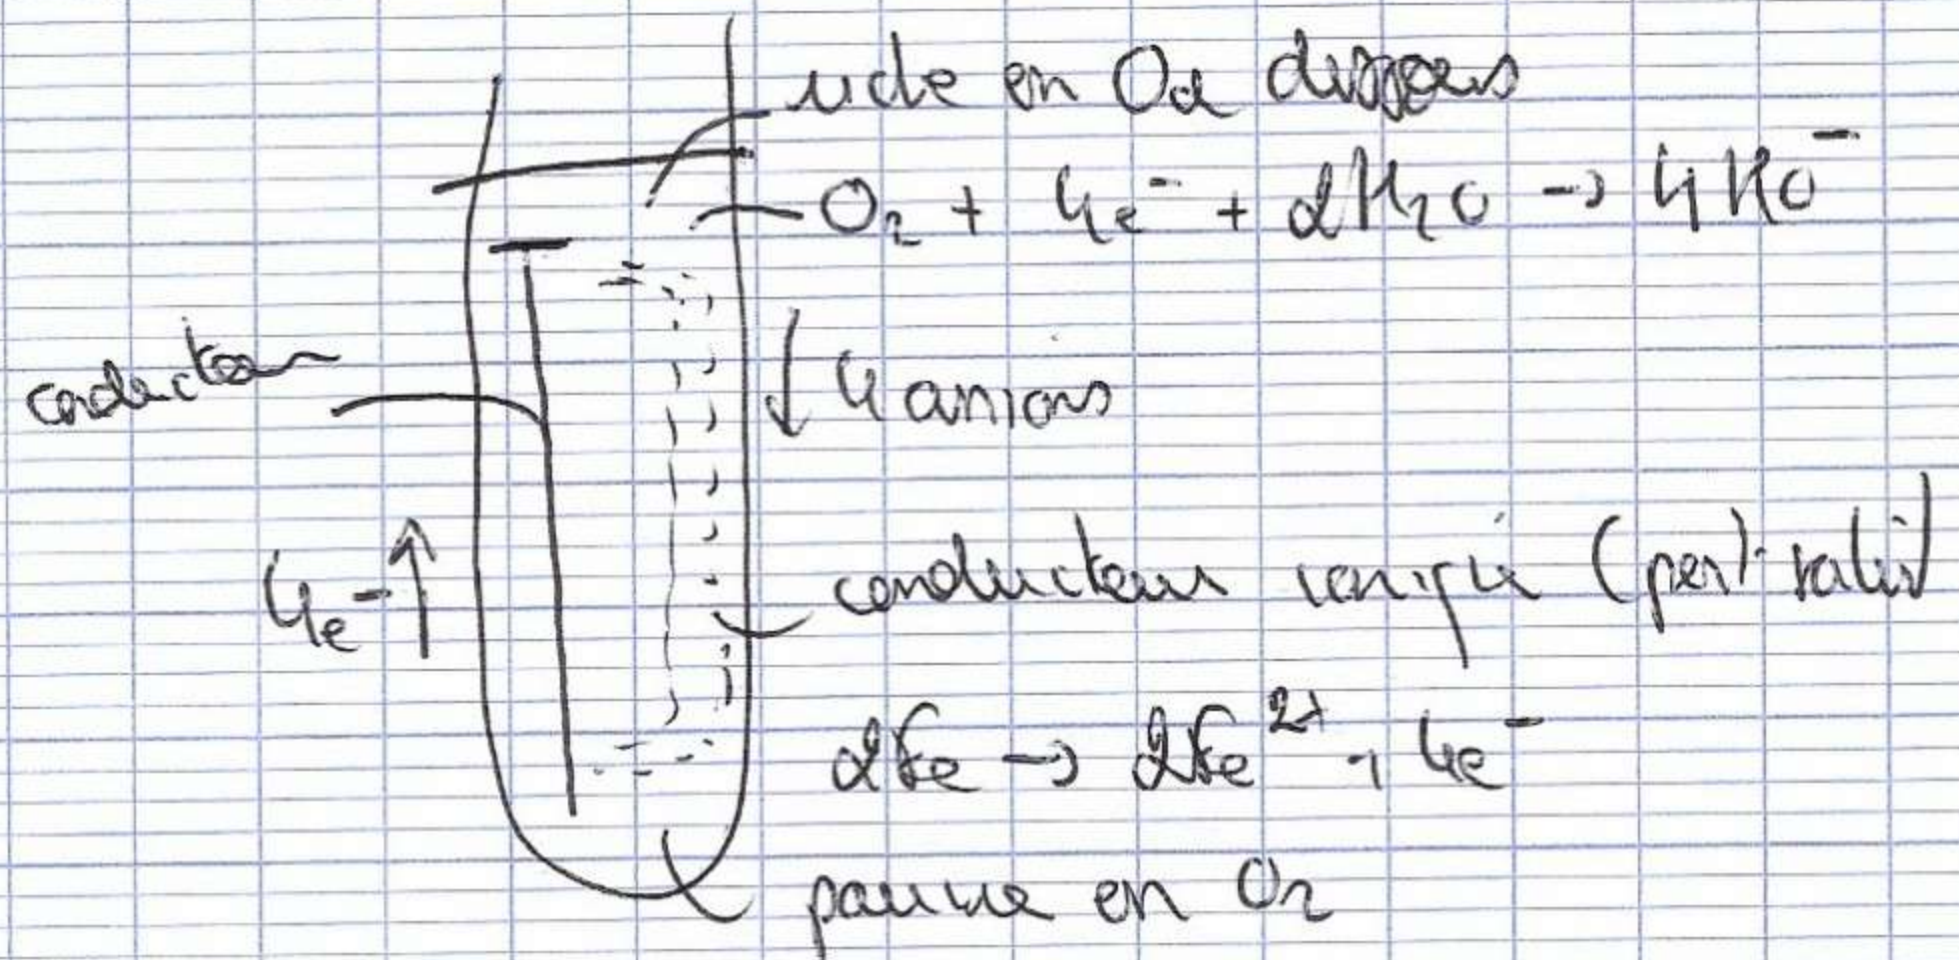 riche en O2 dissous
O2 + 4e⁻ + 2H2O → 4HO⁻
conducteur
↓ 4 anions
4e⁻ ↑
conducteur ionique
2Fe → 2Fe²⁺ + 4e⁻
pauvre en O2